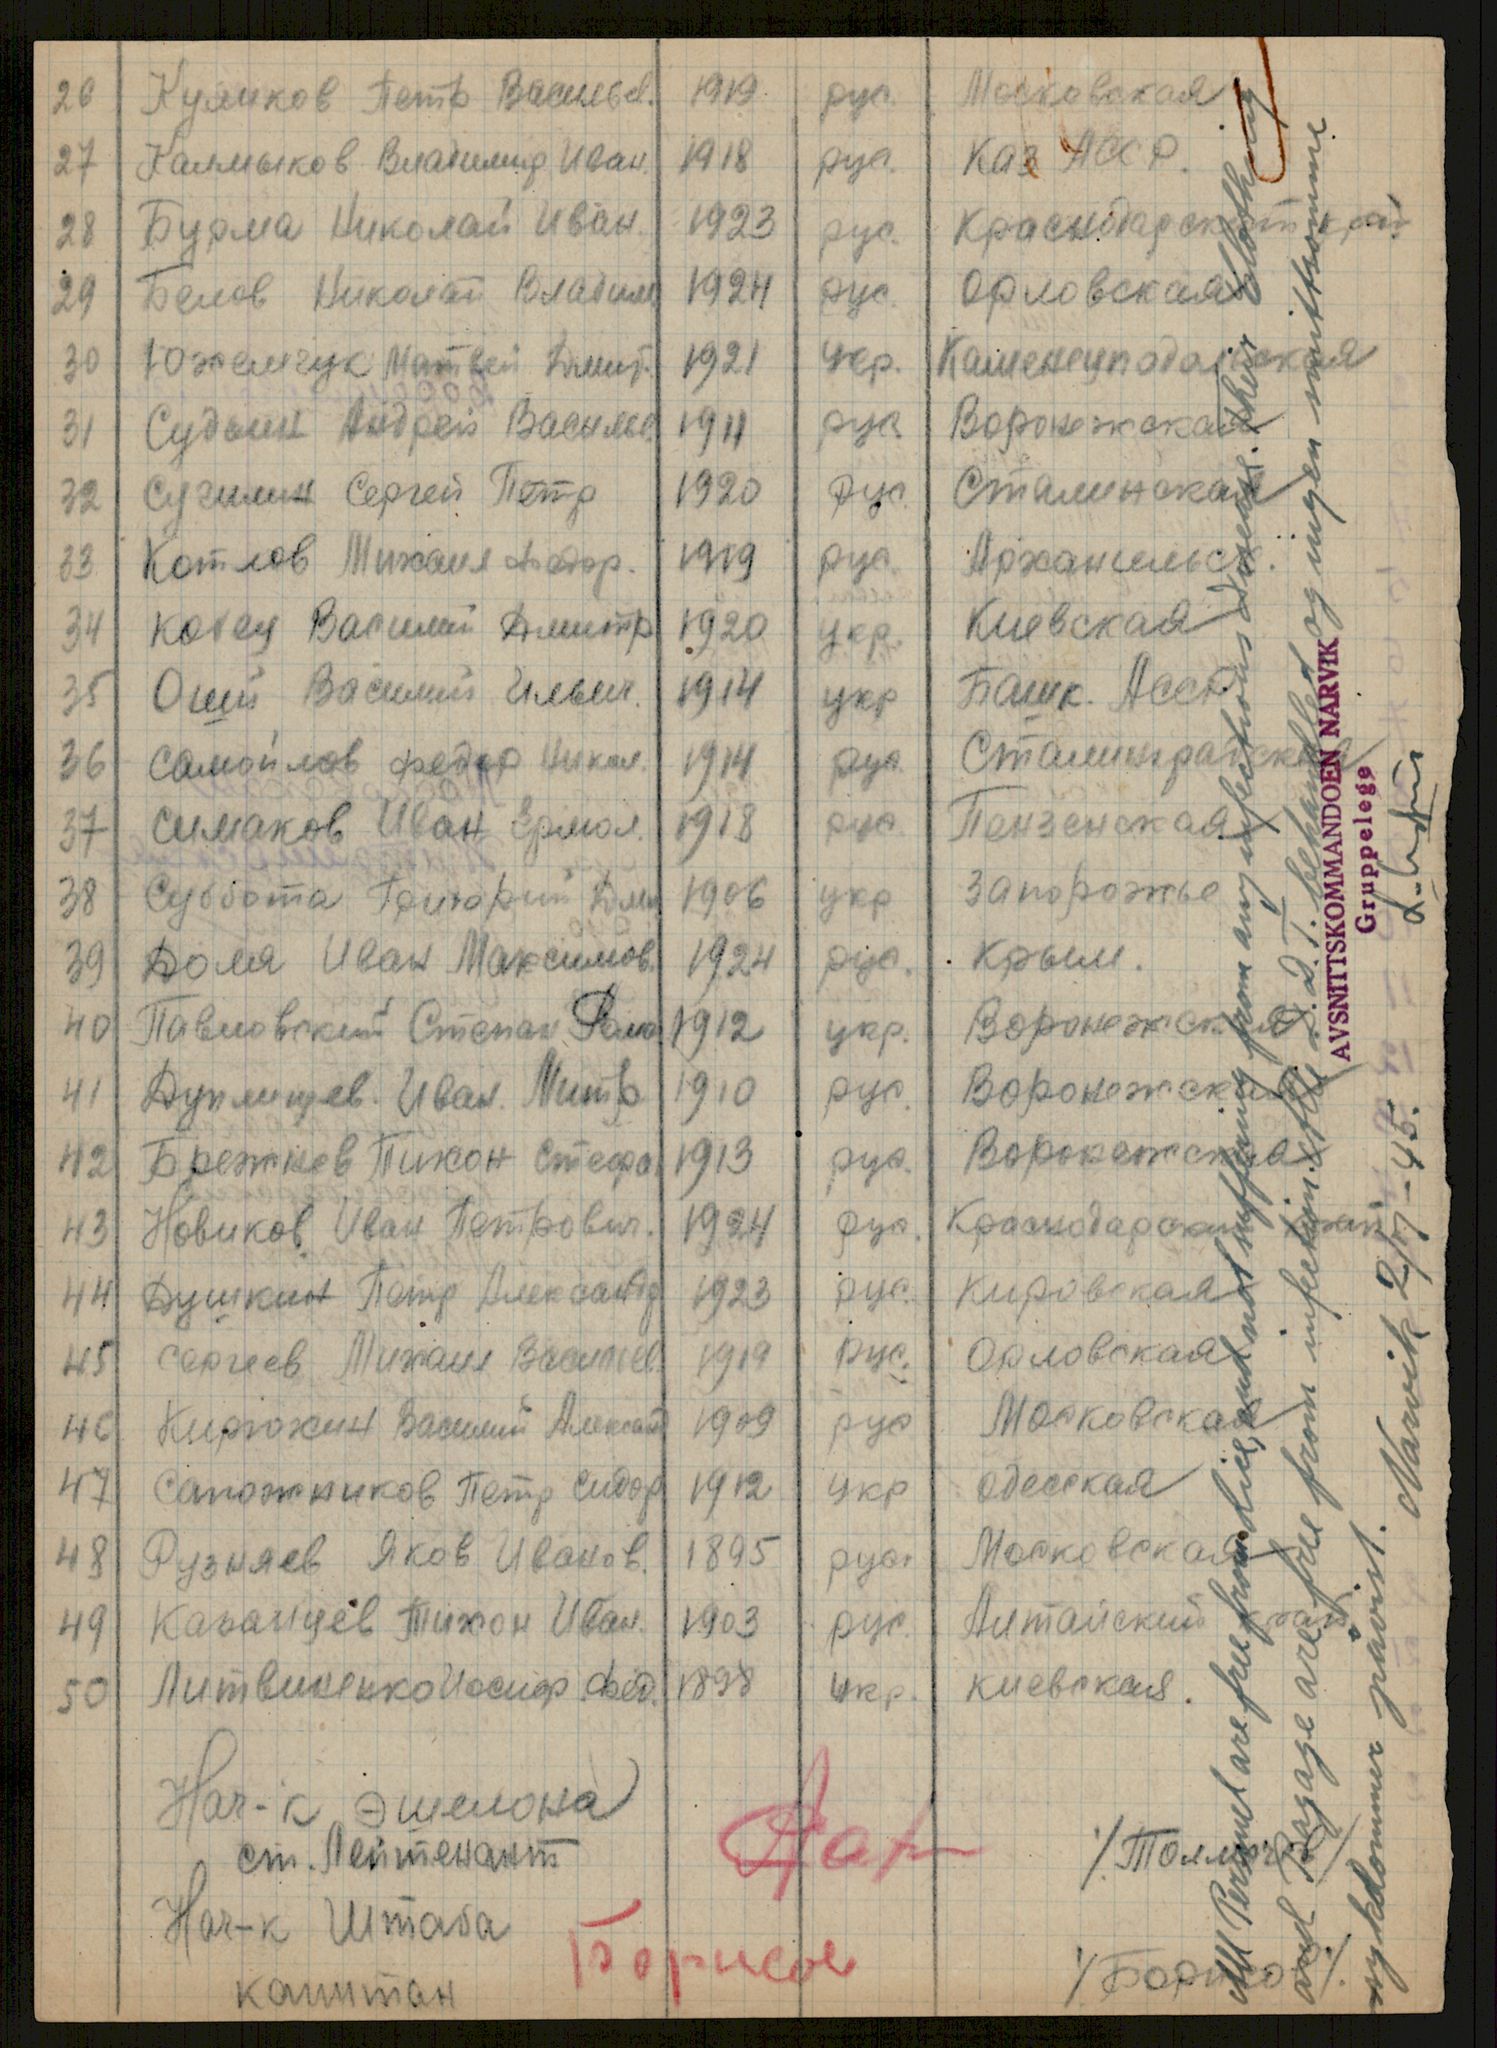 26 Куликов Петр Васильев. 1919 рус. Московская
27 Калмыков Владимир Иван. 1918 рус. Каз АССР.
28 Бурма Николай Иван. 1923 рус. Краснодарский край
29 Белов Николай Владим 1924 рус. Орловская
30 Матвей Дмит. 1921 Укр. Каменецподольская
31 Судьин Андрей Васильев 1911 рус. Воронежская
32 Сучилин Сергей Петр 1920 рус. Сталинская
33 Котлов Михаил Федор. 1919 рус. Архангельск.
34 Василий Дмитр 1920 укр. Киевская
35 Оший Василий Ильич. 1914 укр Башк. АССР
36 Самойлов Федор Никол. 1914 рус. Сталинградская
37 Симаков Иван Ермол. 1918 рус Пензенская
38 Суббота Григорий Дми 1906 укр Запорожье
39 Доля Иван Максимов. 1924 рус. Крым.
40 Павловский Степан 1912 укр. Воронежская
41 Дуплищев. Иван. Митр 1910 рус. Воронежская
42 Брежнев Тихон Стефа 1913 рус. Воронежская
43 Новиков Иван Петрович. 1924 рус. Краснодарский край
44 Душкин Петр Александр 1923 рус. Кировская
45 Сергеев Михаил Васильев 1919 рус. Орловская
46 Кирюхин Василий Алексан 1909 рус Московская
47 Сапожников Петр Сидор 1912 укр Одесская
48 Рузняев Яков Иванов. 1895 рус. Московская
49 Казанцев Тихон Иван. 1903 рус. Алтайский край
50 Литвиненко Иосиф Фед. 1898 Укр. Киевская.
Нач-к эшелона
ст. Лейтенант
Нач-к Штаба
капитан
Борисов
/Борисов/.
All Personel are free from lice, and not suffering from any infectious disease. Their clothing
and Bagage are free from infection. Alle D.D.T. behandlet og ingen smittsomme
sykdommer påvist. Narvik 2/7-45.
AVSNITTSKOMMANDOEN NARVIK
Gruppelege